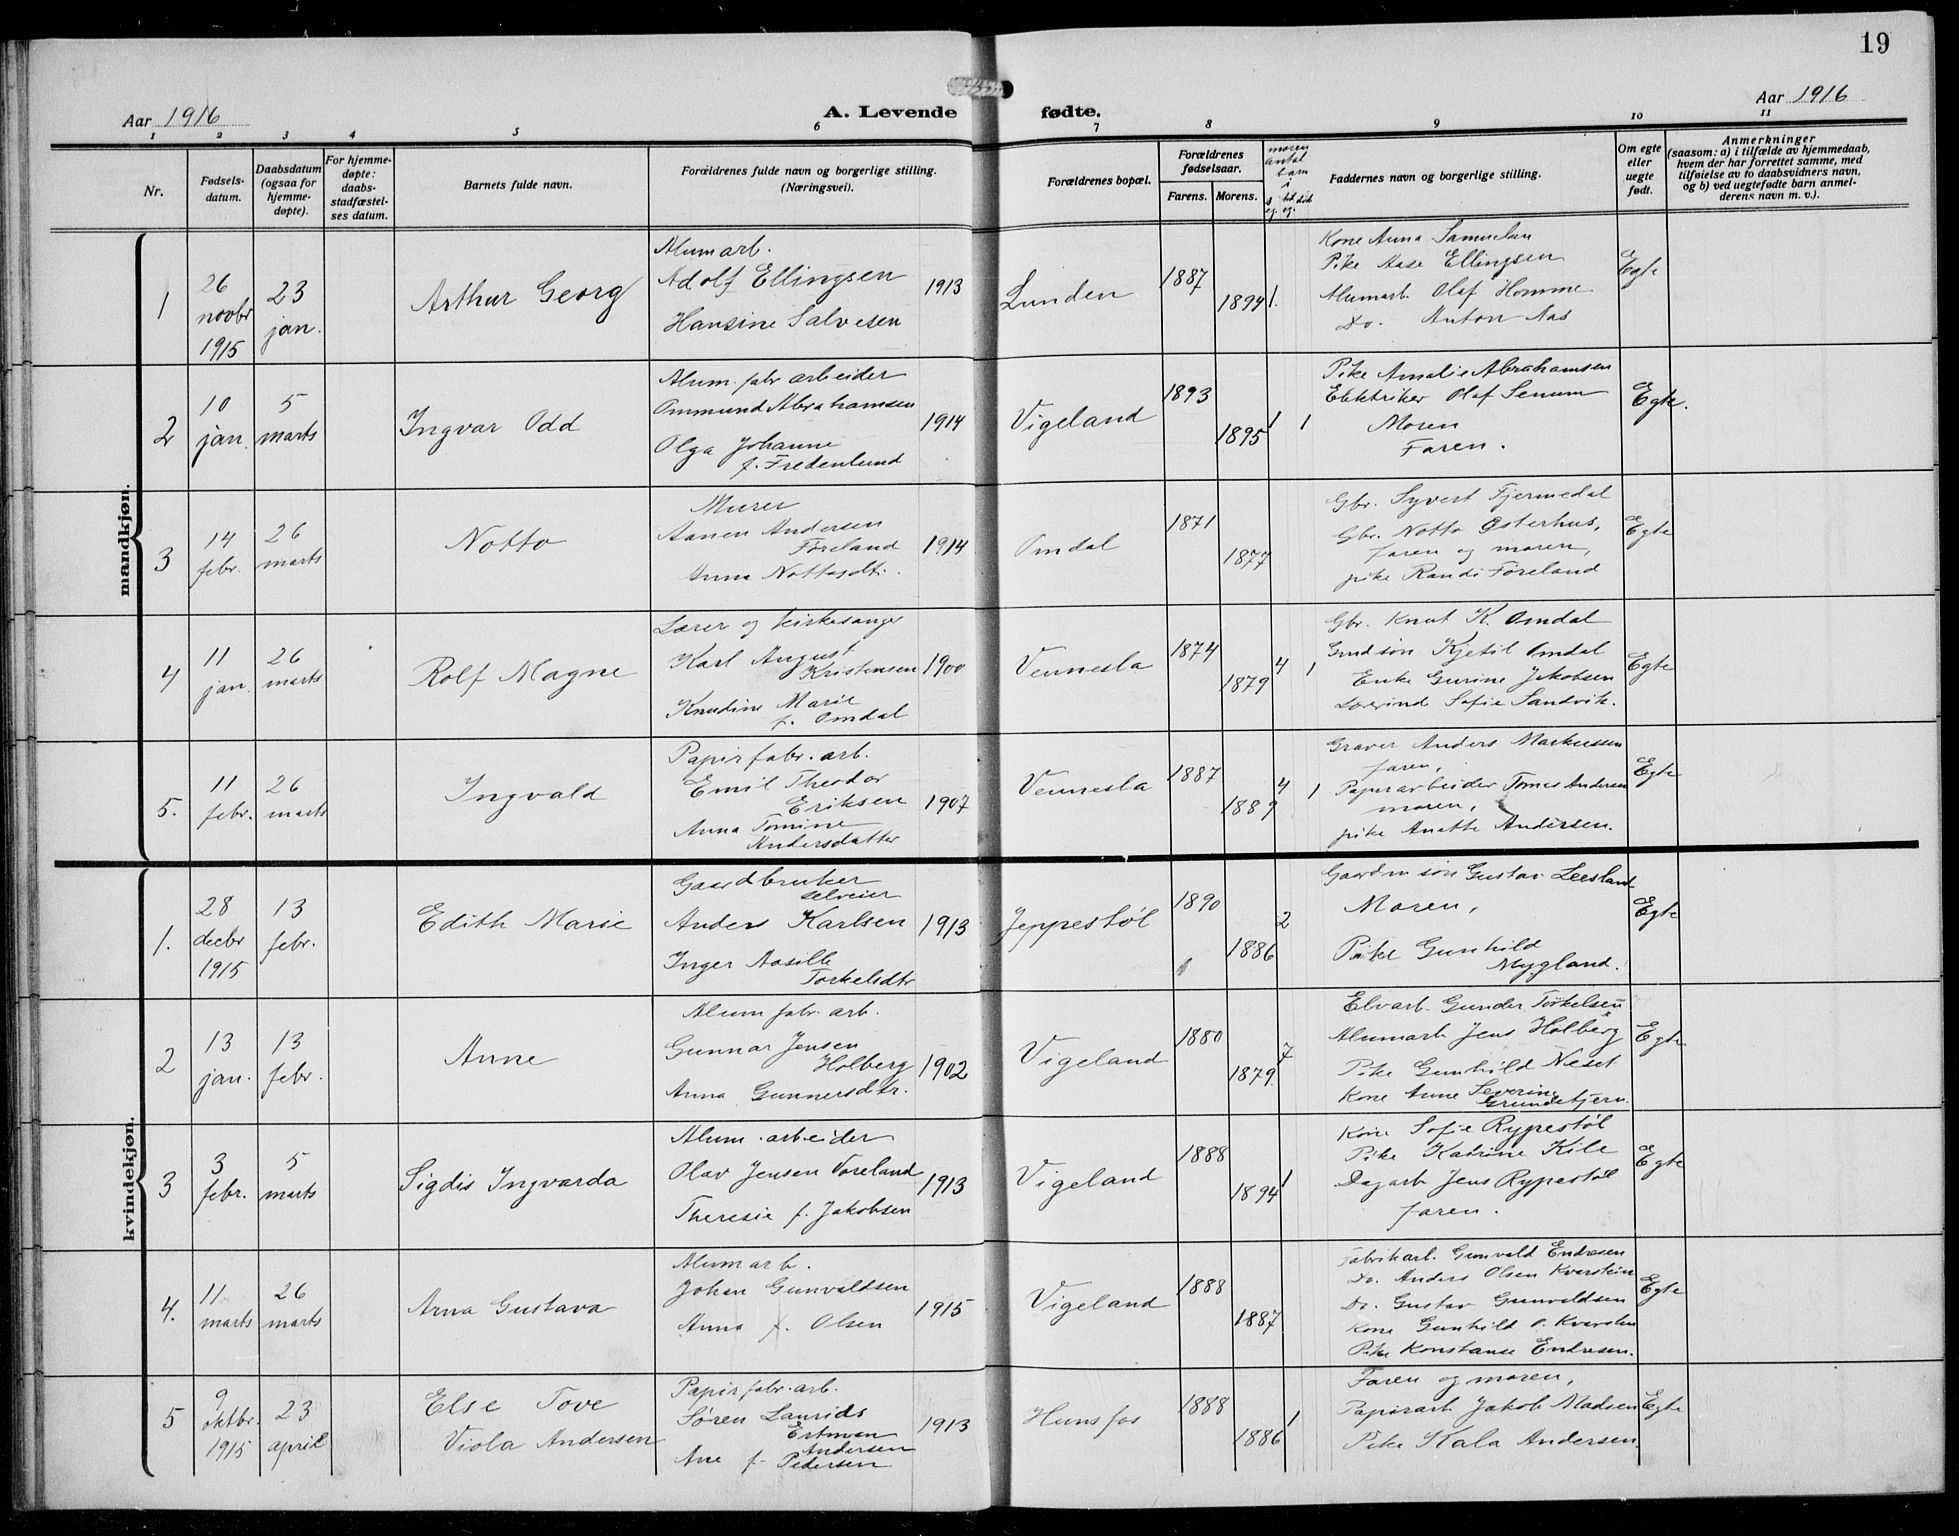 19
Aar 1916
A. Levende fødte.
Aar 1916
1 2 3 4 5 6 7 8 9 10 11
Nr.
Fødsels-
datum.
Daabsdatum
(ogsaa for
hjemme-
døpte).
For hjemme-
døpte:
daabs-
stadfæstel-
ses datum.
Barnets fulde navn.
Forældrenes fulde navn og borgerlige stilling.
(Næringsvei).
Forældrenes bopæl.
Forældrenes
fødselsaar.
Farens. Morens.
moren
antal
barn
i
Faddernes navn og borgerlige stilling.
Om egte
eller
uegte
født.
Anmerkninger
(saasom: a) i tilfælde av hjemmedaab,
hvem der har forrettet samme, med
tilføielse av to daabsvidners navn,
og b) ved uegtefødte barn anmel-
derens navn m. v.).
mandkjøn.
1
26
novbr
1915
23
jan.
Arthur Georg
Alumarb.
Adolf Ellingsen
Hansine Salvesen
1913
Lunden
1887
1894
1.
Kone Anna Samuelsen
Pike Aase Ellingsen
Alumarb. Olaf Homme
Do. Anton Aas
Egte
2
10
jan.
5
marts
Ingvar Odd
Alum. fabr arbeider
Ommund Abrahamsen
Olga Johanne
f. Fredenlund
1914
Vigeland
1893
1895
1 1
Pike Amalie Abrahamsen
Elektriker Olaf Senum
Moren
Faren.
Egte.
3
14
febr.
26
marts
Notto
Murer
Aanen Andersen
Føreland
Anna Nottosdt.
1914
Omdal
1871
1877
Gbr. Syvert Fjermedal
Gbr. Notto Østerhus,
faren og moren,
pike Randi Føreland
Egte
4
11
jan.
26
marts
Rolf Magne
Lærer og kirkesanger
Karl August
Kristensen
Knudine Marie
f. Omdal
1900
Vennesla
1874
1879
4 1
Gbr. Knut K. Omdal
Grdsøn Kjetil Omdal
Enke Gurine Jakobsen
Lærerind Sofie Sandvik.
Egte
5.
11
febr.
26
marts
Ingvald
Papirfabr. arb.
Emil Theodor
Eriksen
Anna Tomine
Andersdatter
1907
Vennesla
1887
1889
4 1
Graver Anders Markussen
faren,
Papirarbeider Tomas Andersen
moren,
pike Anette Andersen.
Egte
kvindekjøn.
1.
28
decbr
1915
13
febr.
Edith Marie
Gaardbruker
selveier
Anders Karlsen
Inger Aasille
Torkelsdtr
1913
Jeppestøl
1890
1886
2
Gaardm søn Gustav Leesland
Moren,
Pike Gunhild
Mygland.
Egte
2
13
jan.
13
febr.
Anne
Alum fabr. arb.
Gunnar Jensen
Holberg
Anna Gunnersdtr.
1902
Vigeland
1880
1879.
7
Elvarb. Gunder Torkelsen
Alumarb Jens Holberg
Pike Gunhild Neset
Kone Anne Severine
Grundetjern.
Egte
3
3
febr.
5
marts
Sigdis Ingvarda
Alum. arbeider
Olav Jensen Voreland
Theresie f. Jakobsen
1913
Vigeland
1888
1894
1
Kone Sofie Rypestøl
Pike Katrine Kile
Dagarb Jens Rypestøl
faren.
Egte
4.
11
marts
26
marts
Arna Gustava
Alumarb.
Johan Gunvaldsen
Anna f. Olsen
1915
Vigeland
1888
1887
Fabrikarb. Gunvald Endresen
Do. Anders Olsen Kverstein
Do. Gustav Gunvaldsen
Kone Gunhild O. Kversten
Pike Konstanse Endresen.
Egte
5
9
oktbr.
1915
23
april
Else Tove
Viola Andersen
Papirfabr. arb.
Søren Laurids
Ertman
Andersen
Ane f. Pedersen
1913
Hunsfos
1888
1886
1
Faren og moren,
Papirarb Jakob Madsen
Pike Kala Andersen.
Egte